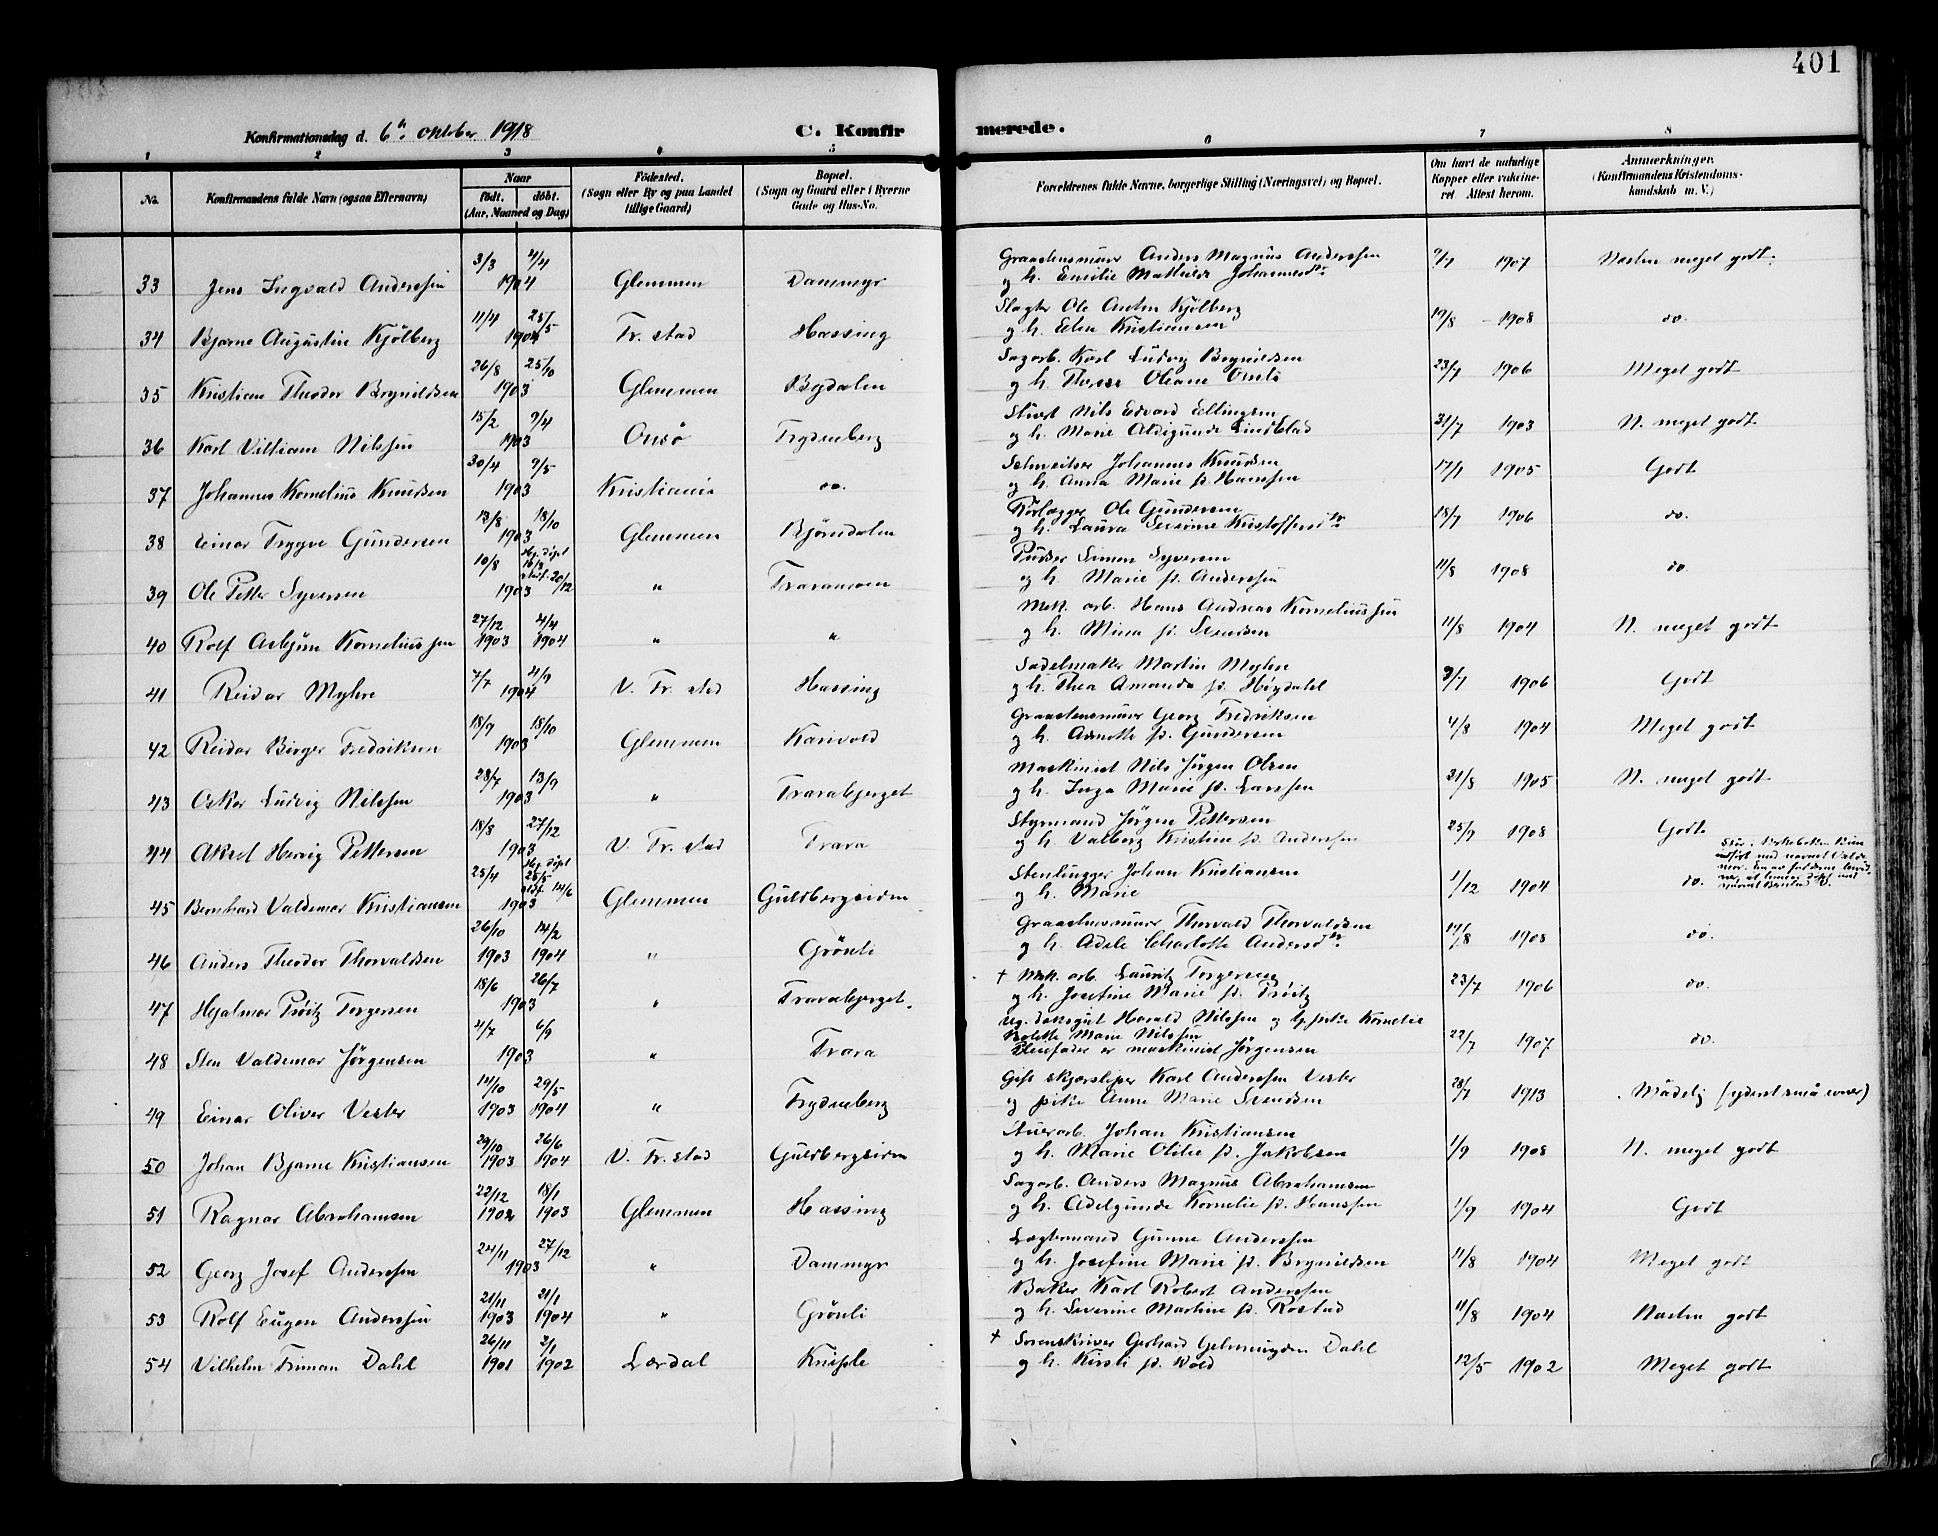 401
Konfirmationsdag d. 6te oktober 1918
C. Konfirmerede.
1 2 3 4 5 6 7 8
No. Konfirmandens fulde Navn (ogsaa Efternavn) Naar født. døbt. (Aar, Maaned og Dag) Fødested. (Sogn eller By og paa Landet tillige Gaard) Bopæl. (Sogn og Gaard eller i Byerne Gade og Hus-No. Forældrenes fulde Navne, borgerlige Stilling (Næringsvei) og Bopæl. Om havt de naturlige Kopper eller vaksineret Attest herom. Anmerkninger. (Konfirmandens Kristendomskundskab m. V.)
33 Jens Ingvald Anderssen 3/3 4/4 1904 Glemmen Dammyr Graastensmurer Anders Magnus Anderssen og h. Emilie Mathilde Johannesdtr 1907 Næsten meget godt.
34 Bjarne Augustin Kjølberg 11/4 25/5 1904 Fr. stad Hassing Slagter Ole Anton Kjølberg og h. Elen Kristiansen 19/8 1908 do.
35 Kristian Theodor Brynildsen 26/8 25/10 1903 Glemmen Bydalen Sagarb. Karl Ludvig Brynildsen og h. Therese Oleane 23/7 1906 Meget godt
36 Karl Villiam Nilssen 15/2 9/4 1903 Onsø Frydenberg Nils Edvard Ellingsen og h. Marie Aldigunde Lindblad 31/7 1903 N. meget godt.
37 Johannes Kornelius Knudsen 30/4 9/5 1903 Kristiania do. Johannes Knudsen og h. Anna Marie f. Hanssen 17/7 1905 Godt
38 Einar Trygve Gundersen 13/8 18/10 1903 Glemmen Bjørndalen Rørlægger Ole Gundersen og h. Laura Severine Kristoffersdtr 18/7 1906 do.
39 Ole Petter Syversen 10/8 Hj. døpt 16/8 20/12 1903 " Traramoen Pudser Simon Syversen og h. Marie f. Anderssen 11/8 1908 do.
40 Rolf Asbjørn Korneliussen 27/12 1903 4/4 1904 " " Mek. arb. Hans Andreas Korneliussen og h. Mina f. Svendsen 11/8 1904 N. meget godt
41 Reidar Myhre 7/7 21/9 1904 V. Fr. stad Hassing Sadelmaker Martin Myhre og h. Thea Amanda f. Høgdahl 1906 Godt
42 Reidar Birger Fredriksen 18/9 18/10 1903 Glemmen Karivold Graastensmurer Georg Fredriksen og h. Agnette f. Gundersen 4/8 1904 Meget godt
43 Oskar Ludvig Nilssen 23/7 13/9 1903 " Trarabjerget Maskinist Nils Jørgen Olsen og h. Inga Marie f. Larssen 21/8 1905 N. meget godt
44 Aksel Hervig Pettersen 18/8 27/12 1903 V. Fr. stad Trara Styrmand Jørgen Pettersen og h. Valborg Kristine f. Anderssen 25/7 1908 Godt
45 Bernhard Valdemar Kristiansen 25/4 Hj. døpt 25/5 14/6 1903 Glemmen Guldbergsiden Stenhugger Johan Kristiansen og h. Marie 1/12 1904 do. Står i kirkeboken kun
46 Anders Theodor Thorvaldsen 26/10 1903 14/2 1904 " Grönli Graastensmurer Thorvald Thorvaldsen og h. Adele Charlotte Andersdtr 17/8 1908 do.
47 Hjalmar Prøitz Torgersen 18/6 26/7 1903 " Trarabjerget. † Mek. arb. Lauritz Torgersen og h. Josefine Marie f. Prøitz 23/7 1906 do.
48 Sten Valdemar Jørgensen 4/7 6/9 1903 " Trara Ug. Harald Nilssen og pike Kornelie Marie Nilssen Pleiefader er maskinist Jørgensen 22/7 1907 do.
49 Einar Oliver Vester 14/10 1903 29/5 1904 " Frydenberg Gift skjærsliper Karl Anderssen Vester og pike Anne Marie Svendsen 28/7 1913 Mådelig (yderst små evner)
50 Johan Bjarne Kristiansen 29/10 1903 26/6 1904 V. Fr. stad Guldbergsiden Stuerarb. Johan Kristiansen og h. Marie Otilie f. Jakobsen 1/9 1908 N. meget godt
51 Ragnar Abrahamsen 22/12 1902 18/1 1903 Glemmen Hassing Sagarb. Anders Magnus Abrahamsen og h. Adelgunde Kornelie f. Hanssen 1/9 1904 Godt
52 Georg Josef Anderssen 24/11 27/12 1903 " Dammyr Lægtermand Gunne Anderssen og h. Josefine Marie f. Brynildsen 11/8 1904 Meget godt
53 Rolf Eugen Anderssen 21/11 1903 21/1 1904 " Grönli Baker Karl Robert Anderssen og h. Severine Martine f. Rostad 11/8 1904 Næsten godt
54 Vilhelm Friman Dahl 26/11 1901 2/1 1902 Lærdal Kniple † Sorenskriver Gerhard Gelmuyden Dahl og h. Kirsti f. Wold 12/5 1902 Meget godt